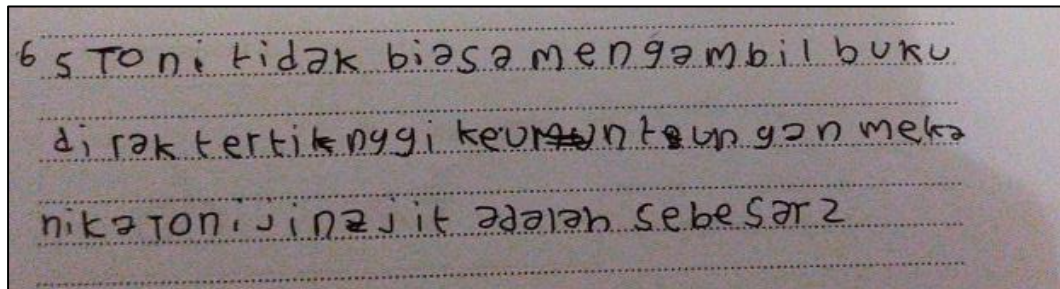 6 5 TOni tidak biasa mengambil buku
di rak tertik nygi keuruntungan meka
nika TOni jinajit adalah sebesar 2